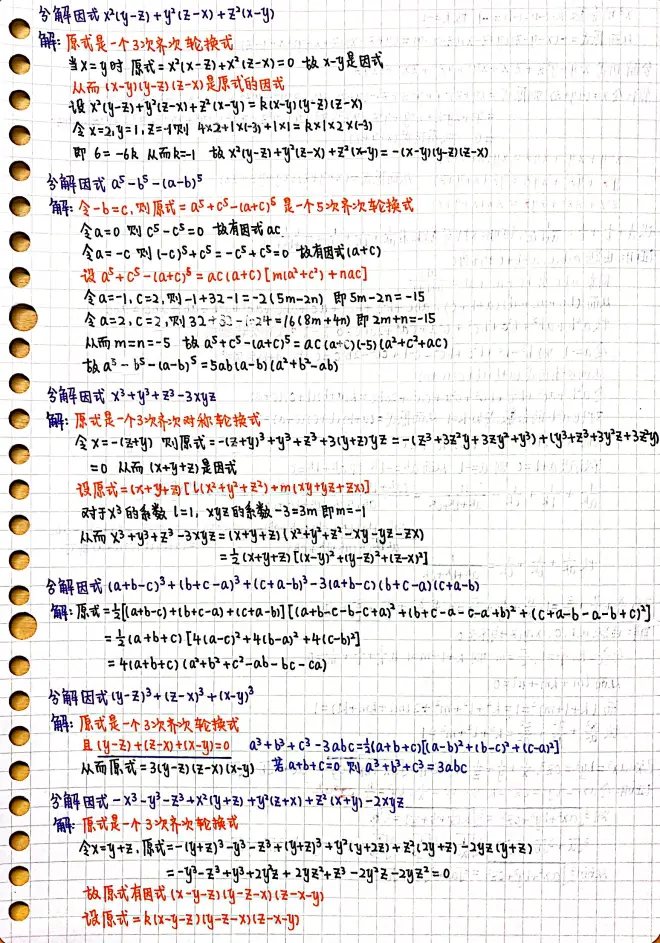 分解因式 x²(y-z)+y²(z-x)+z²(x-y)
解: 原式是一个3次齐次轮换式
当x=y时 原式=x²(x-z)+x²(z-x)=0 故x-y是因式
从而 (x-y)(y-z)(z-x)是原式的因式
设 x²(y-z)+y²(z-x)+z²(x-y)=k(x-y)(y-z)(z-x)
令x=2,y=1,z=-1则 4×2+1×(-3)+1×1=k×1×2×(-3)
即 6=-6k 从而k=-1 故 x²(y-z)+y²(z-x)+z²(x-y)=-(x-y)(y-z)(z-x)
分解因式 a⁵-b⁵-(a-b)⁵
解: 令-b=c,则原式=a⁵+c⁵-(a+c)⁵ 是一个5次齐次轮换式
令a=0 则 c⁵-c⁵=0 故有因式ac
令a=-c 则 (-c)⁵+c⁵=-c⁵+c⁵=0 故有因式(a+c)
设 a⁵+c⁵-(a+c)⁵=ac(a+c)[m(a²+c²)+nac]
令a=-1,c=2,则-1+32-1=-2(5m-2n) 即 5m-2n=-15
令a=2,c=2,则32+32-1024=16(8m+4n) 即 2m+n=-15
从而 m=n=-5 故 a⁵+c⁵-(a+c)⁵=ac(a+c)(-5)(a²+c²+ac)
故 a⁵-b⁵-(a-b)⁵=5ab(a-b)(a²+b²-ab)
分解因式 x³+y³+z³-3xyz
解: 原式是一个3次齐次对称轮换式
令x=-(z+y) 则原式=-(z+y)³+y³+z³+3(y+z)yz=-(z³+3z²y+3zy²+y³)+(y³+z³+3y²z+3z²y)
=0 从而 (x+y+z)是因式
设原式=(x+y+z)[l(x²+y²+z²)+m(xy+yz+zx)]
对于x³的系数 l=1, xyz的系数 -3=3m 即m=-1
从而 x³+y³+z³-3xyz=(x+y+z)(x²+y²+z²-xy-yz-zx)
=½(x+y+z)[(x-y)²+(y-z)²+(z-x)²]
分解因式 (a+b-c)³+(b+c-a)³+(c+a-b)³-3(a+b-c)(b+c-a)(c+a-b)
解: 原式=½[(a+b-c)+(b+c-a)+(c+a-b)][(a+b-c-b-c+a)²+(b+c-a-c-a+b)²+(c+a-b-a-b+c)²]
=½(a+b+c)[4(a-c)²+4(b-a)²+4(c-b)²]
=4(a+b+c)(a²+b²+c²-ab-bc-ca)
分解因式 (y-z)³+(z-x)³+(x-y)³
解: 原式是一个3次齐次轮换式
且(y-z)+(z-x)+(x-y)=0 a³+b³+c³-3abc=½(a+b+c)[(a-b)²+(b-c)²+(c-a)²]
从而原式=3(y-z)(z-x)(x-y) 若a+b+c=0 则 a³+b³+c³=3abc
分解因式 -x³-y³-z³+x²(y+z)+y²(z+x)+z²(x+y)-2xyz
解: 原式是一个3次齐次轮换式
令x=y+z,原式=-(y+z)³-y³-z³+(y+z)³+y²(y+2z)+z²(2y+z)-2yz(y+z)
=-y³-z³+y³+2y²z+2yz²+z³-2y²z-2yz²=0
故原式有因式 (x-y-z)(y-z-x)(z-x-y)
设原式=k(x-y-z)(y-z-x)(z-x-y)